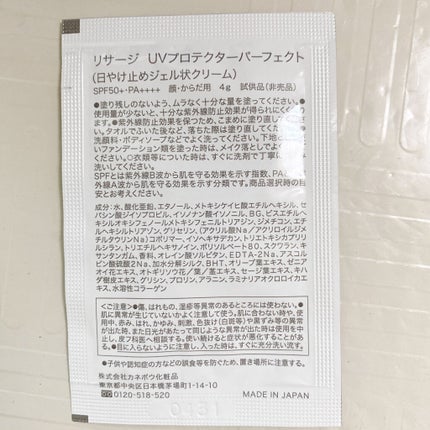 リサージ　UVプロテクターパーフェクト
(日やけ止めジェル状クリーム)
SPF50+・PA++++　顔・からだ用　4g　試供品(非売品)
●塗り残しのないよう、ムラなく十分な量を塗ってください。●
使用量が少ないと、十分な紫外線防止効果が得られません。
●紫外線防止効果を保つため、こまめに塗り直してくださ
い。タオルでふいた後など、落ちた際は塗り直してください。●
洗顔料・ボディソープなどでよく洗ってください。下地
いファンデーション類を塗った時は、メイク落としでよくな
い。○衣類等についた時は、すぐに洗剤で丁寧に
洗いしてください。
SPFとは紫外線B波から肌を守る効果を示す指数、PA
外線A波から肌を守る効果を示す分類です。商品選択時の目
安とお考えください。
成分:水、酸化亜鉛、エタノール、メトキシケイヒ酸エチルヘキシル、セ
バシン酸ジイソプロピル、イソノナン酸イソノニル、BG、ビスエチルヘ
キシルオキシフェノールメトキシフェニルトリアジン、ジメチコン、エチル
ヘキシルトリアゾン、グリセリン、(アクリル酸Na/アクリロイルジメ
チルタウリンNa)コポリマー、イソヘキサデカン、トリエトキシカプリリ
ルシラン、トリエチルヘキサノイン、ポリソルベート80、スクワラン、キ
サンタンガム、香料、オレイン酸ソルビタン、EDTA-2Na、アスコル
ビン酸硫酸2Na、加水分解シルク、BHT、オリーブ葉エキス、ゼニア
オイ花エキス、オトギリソウ花/葉/茎エキス、セージ葉エキス、キハ
ダ樹皮エキス、グリシン、プロリン、アラニン、ラミナリアオクロロイカエキ
ス、水溶性コラーゲン
<ご注意>●傷、はれもの、湿疹等異常のあるところには使わない。●
肌に異常が生じていないかよく注意して使う。肌に合わない時や、使
用中、赤み、はれ、かゆみ、刺激、色抜け(白斑等)や黒ずみ等の異常が
出た時、また日光があたって同じような異常が出た時は使用を中止
し、皮フ科医へ相談する。使い続けると症状が悪化することがあ
る。●目に入らないように注意し、入った時は、すぐに充分洗い流す。
●子供や認知症の方などの誤食等を防ぐため、置き場所に注意する。
株式会社カネボウ化粧品
東京都中央区日本橋茅場町1-14-10
0120-518-520
MADE IN JAPAN